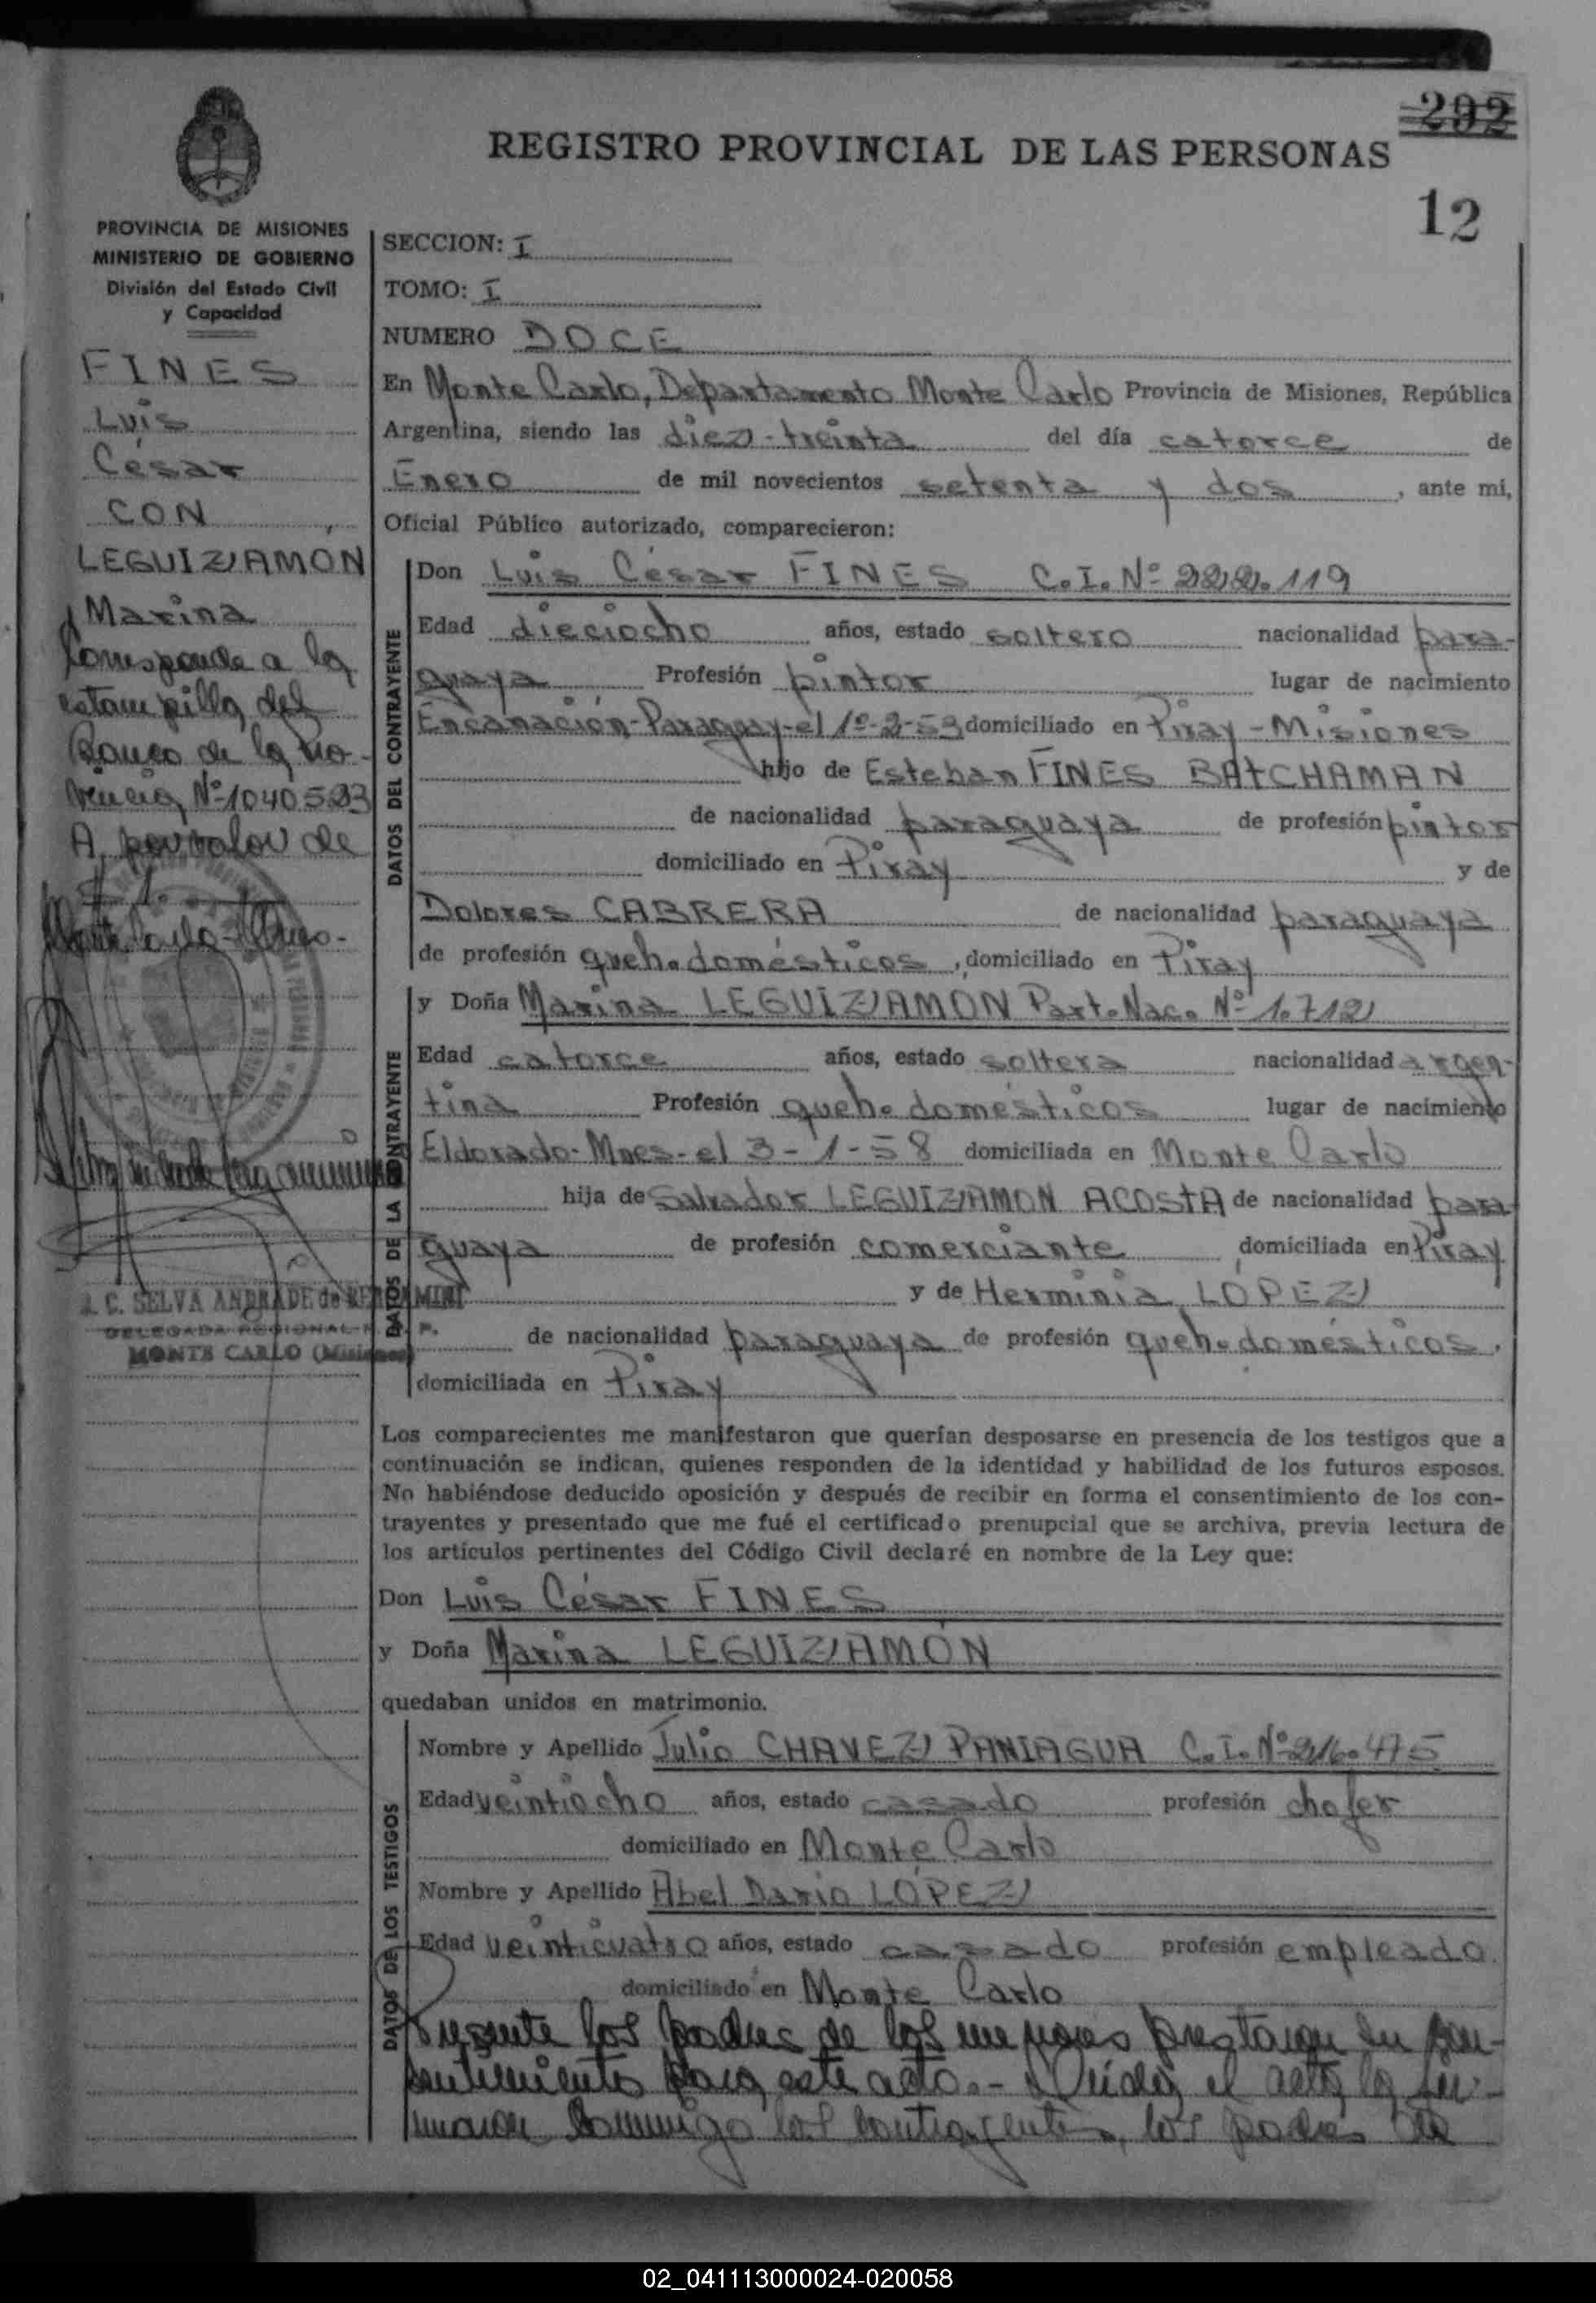 292
REGISTRO PROVINCIAL DE LAS PERSONAS
12
PROVINCIA DE MISIONES
MINISTERIO DE GOBIERNO
División del Estado Civil
y Capacidad
FINES
Luis
César
CON
LEGUIZAMON
Marina
Corresponde a la
estampilla del
Banco de la Pro-
vincia Nº 1040593
A por valor de
$ 1.
J. C. SELVA ANDRADE de
DELEGADA REGIONAL R. P. P.
MONTE CARLO (Misiones)
SECCION: I
TOMO: I
NUMERO DOCE
En Monte Carlo, Departamento Monte Carlo Provincia de Misiones, República
Argentina, siendo las diez-treinta del día catorce de
Enero de mil novecientos setenta y dos, ante mi,
Oficial Público autorizado, comparecieron:
DATOS DEL CONTRAYENTE
Don Luis César FINES C.I. Nº 222.119
Edad dieciocho años, estado soltero nacionalidad para-
guaya Profesión pintor lugar de nacimiento
Encanación-Paraguay-el 1º-2-53 domiciliado en Piray-Misiones
hijo de Esteban FINES BATCHAMAN
de nacionalidad paraguaya de profesión pintor
domiciliado en Piray y de
Dolores CABRERA de nacionalidad paraguaya
de profesión queh. domésticos, domiciliado en Piray
DATOS DE LA CONTRAYENTE
y Doña Marina LEGUIZAMON Part. Nac. Nº 1.712
Edad catorce años, estado soltera nacionalidad argen-
tina Profesión queh. domésticos lugar de nacimiento
Eldorado-Mnes-el 3-1-58 domiciliada en Monte Carlo
hija de Salvador LEGUIZAMON ACOSTA de nacionalidad para
guaya de profesión comerciante domiciliada en Piray
y de Herminia LÓPEZ
de nacionalidad paraguaya de profesión queh. domésticos.
domiciliada en Piray
Los comparecientes me manifestaron que querían desposarse en presencia de los testigos que a
continuación se indican, quienes responden de la identidad y habilidad de los futuros esposos.
No habiéndose deducido oposición y después de recibir en forma el consentimiento de los con-
trayentes y presentado que me fué el certificado prenupcial que se archiva, previa lectura de
los artículos pertinentes del Código Civil declaré en nombre de la Ley que:
Don Luis César FINES
y Doña Marina LEGUIZAMÓN
quedaban unidos en matrimonio.
DATOS DE LOS TESTIGOS
Nombre y Apellido Julio CHAVEZ PANIAGUA C.I. Nº 216.475
Edad veintiocho años, estado casado profesión chofer
domiciliado en Monte Carlo
Nombre y Apellido Abel Dario LÓPEZ
Edad veinticuatro años, estado casado profesión empleado
domiciliado en Monte Carlo
Presente los padres de los menores prestaron su con-
sentimiento para este acto.- Leída el acta la fir-
maron conmigo los contrayentes, los padres de
02_041113000024-020058